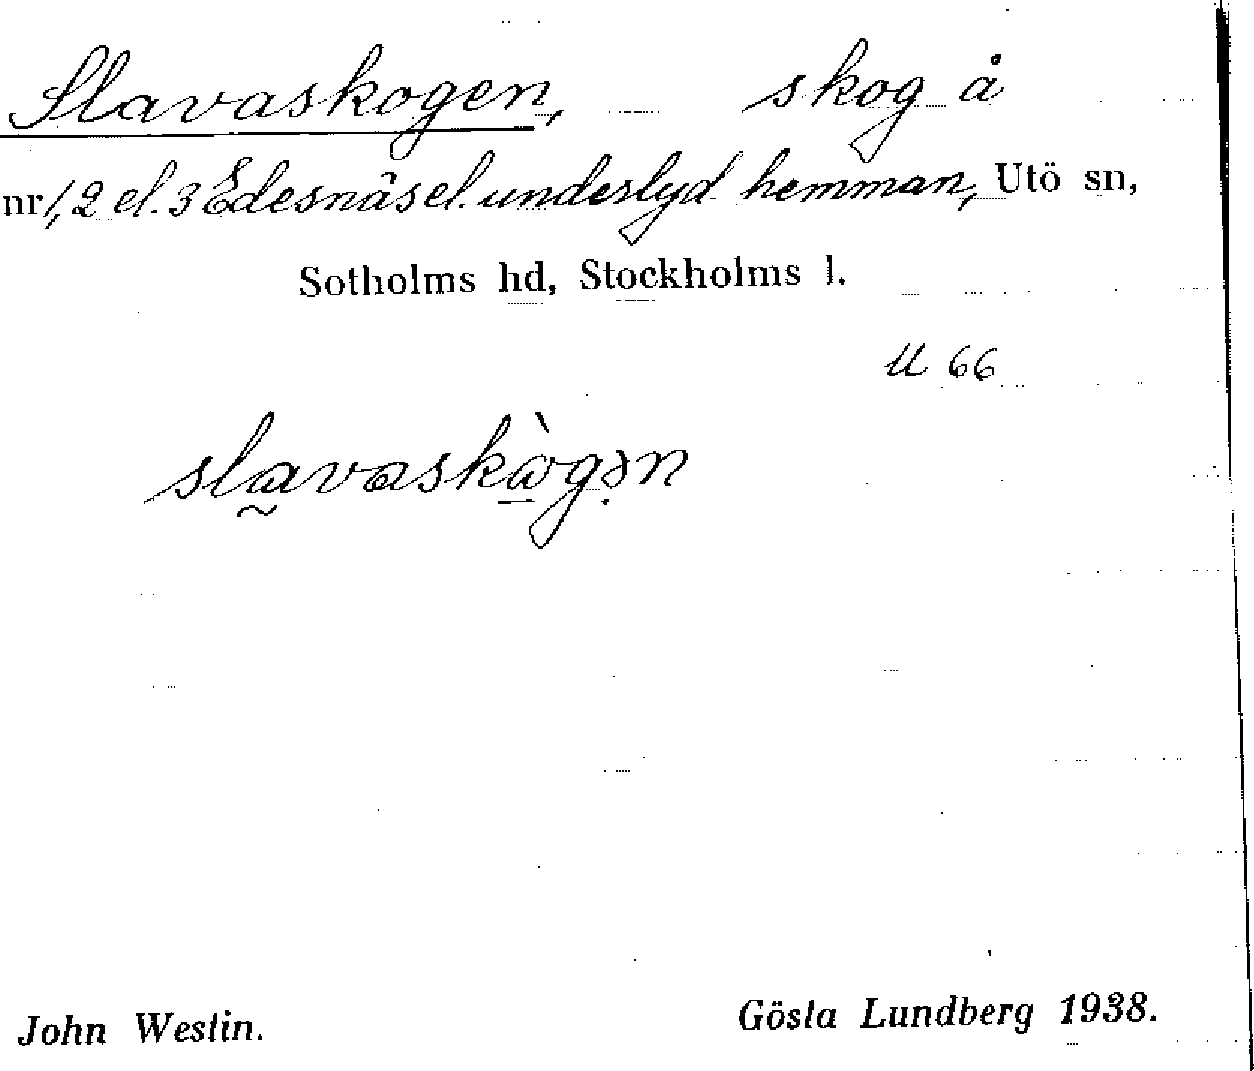 Slavaskogen, skog å
nr 1, 2 el. 3 Edesnäs el. underlyd hemman, Utö sn,
Sotholms hd, Stockholms l.
U 66
slavaskògən
John Westin. Gösta Lundberg 1938.